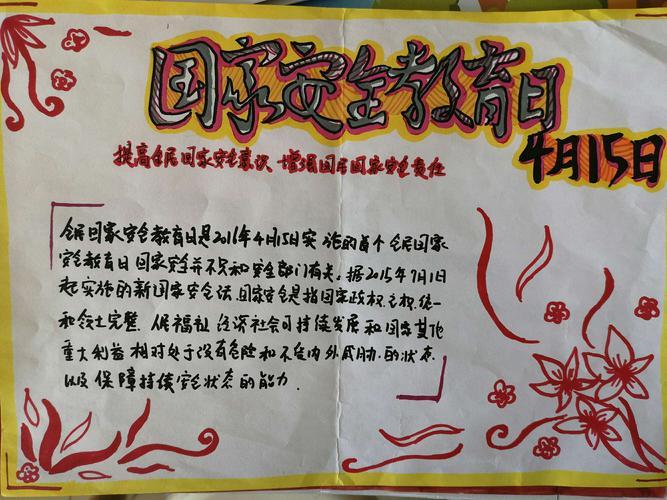 国家安全教育日
4月15日
提高全民国家安全意识 增强国民国家安全责任
全民国家安全教育日是2016年4月15日实施的首个全民国家
安全教育日 国家安全并不只和安全部门有关。据2015年7月1日
起实施的新国家安全法,国家安全是指国家政权、主权、统一
和领土完整、人民福祉、经济社会可持续发展和国家其他
重大利益相对处于没有危险和不受内外威胁的状态
以及保障持续安全状态的能力.